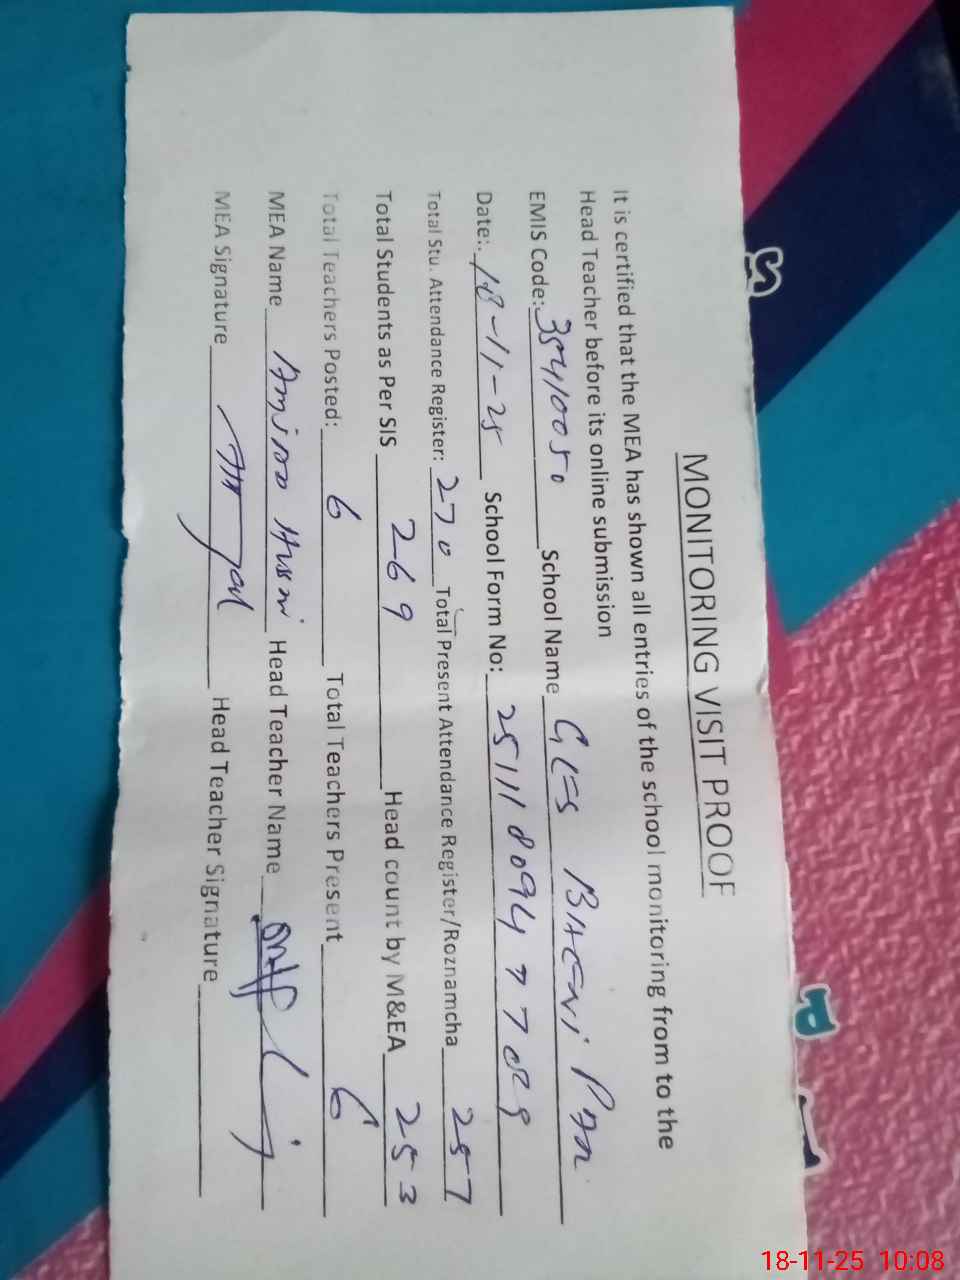 MONITORING VISIT PROOF
It is certified that the MEA has shown all entries of the school monitoring from to the
Head Teacher before its online submission
EMIS Code: 35410050 School Name
Date:. 18-11-25 School Form No:
Total Stu. Attendance Register: 270 Total Present Attendance Register/Roznamcha 257
Total Students as Per SIS 269 Head count by M&EA 253
Total Teachers Posted: 6 Total Teachers Present 6
MEA Name Head Teacher Name
MEA Signature Head Teacher Signature
18-11-25 10:08